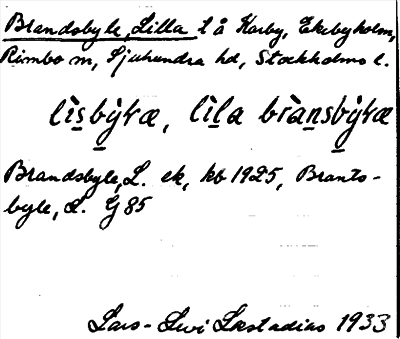 Brandsbyle, Lilla t å Karby, Ekebyholm,
Rimbo sn, Sjuhundra hd, Stockholms l.
lìs̲bỳ̲ɤæ, lìl̲a brànsbỳ̲ɤæ
Brandsbyle, L. ek, kb 1925, Brants-
byle, L. G 85
Lars-Levi Læstadius 1933